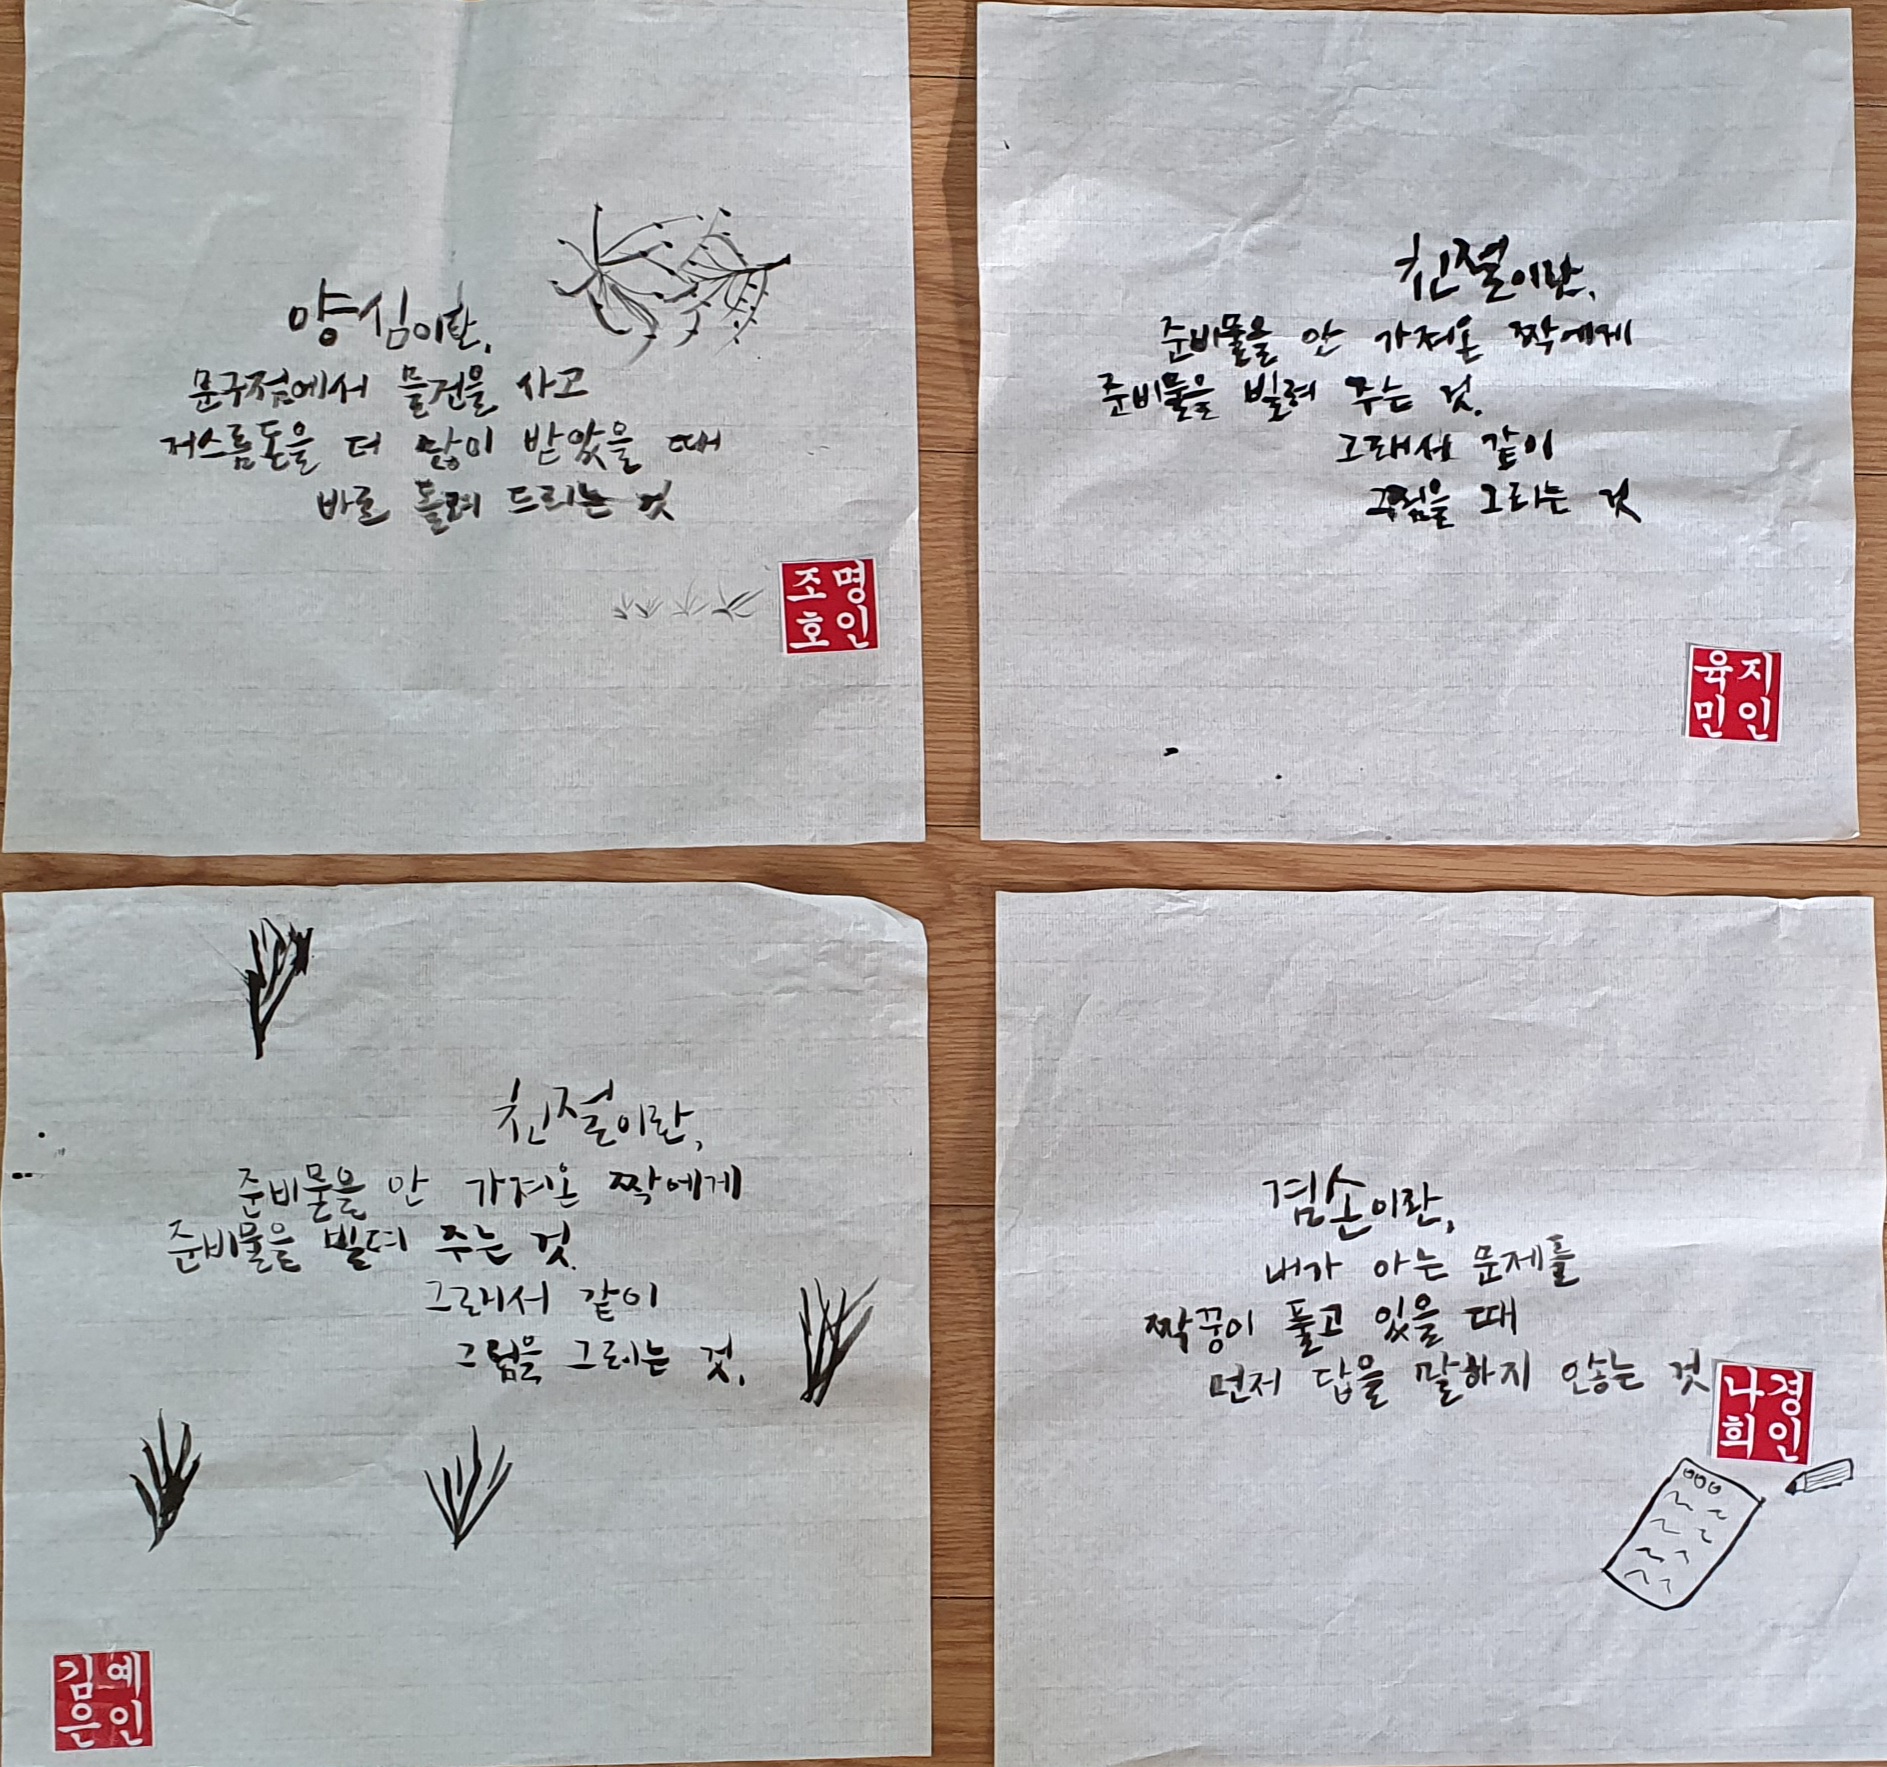 양심이란,
문구점에서 물건을 사고
저스름돈을 더 많이 받았을 때
바로 돌려 드리는 것
조명
호인
친절이란,
준비물을 안 가져온 짝에게
준비물을 빌려 주는 것.
그래서 같이
그림을 그리는 것
육지
민인
친절이란,
준비물을 안 가져온 짝에게
준비물을 빌려 주는 것.
그래서 같이
그림을 그리는 것.
김예
은인
겸손이란,
내가 아는 문제를
짝꿍이 풀고 있을 때
먼저 답을 말하지 않는 것
나경
희인